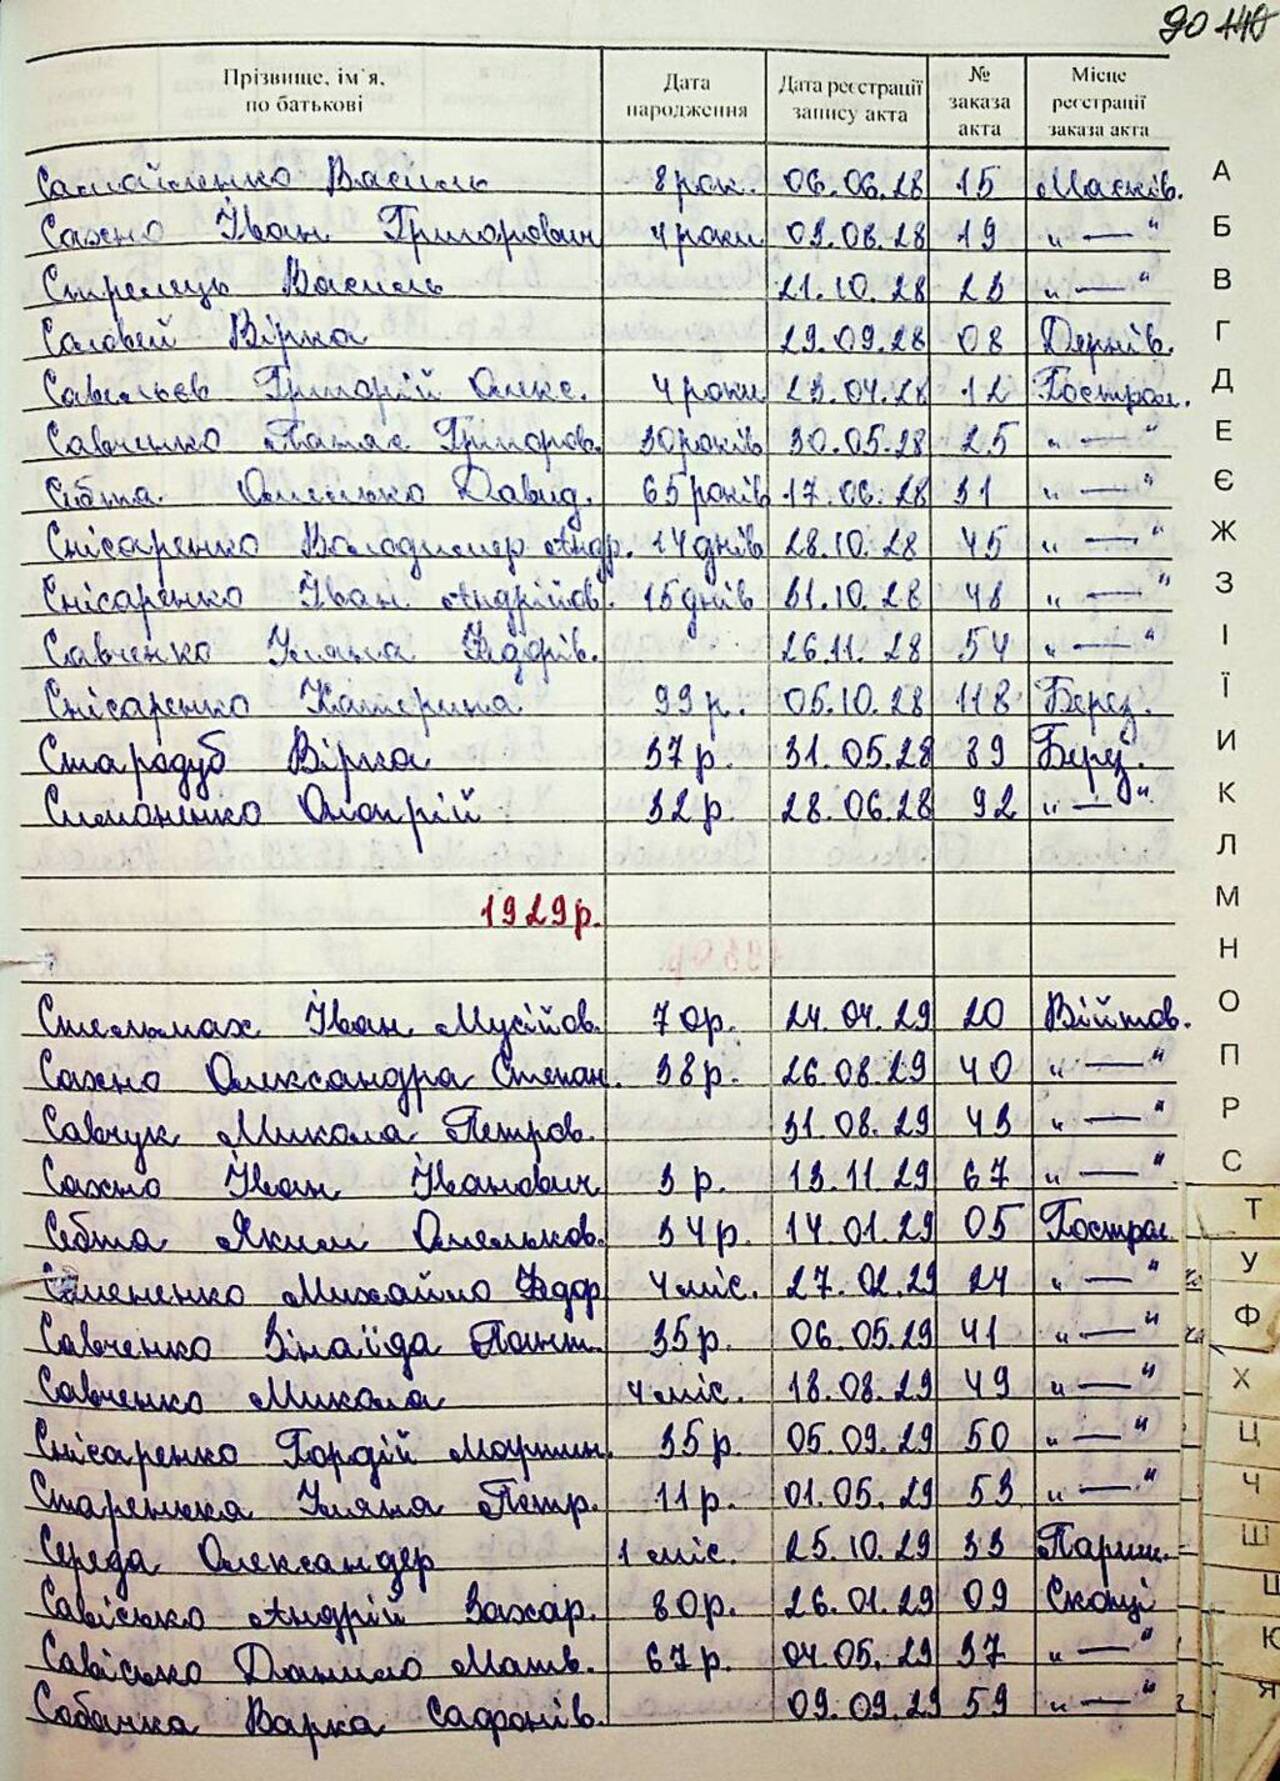 90 140
Прізвище, ім'я, по батькові Дата народження Дата реєстрації запису акта № заказа акта Місце реєстрації заказа акта
Самойленко Василь 8 рок. 06.06.28 15 Масків.
Сахно Іван Григорович 4 роки 03.08.28 19 „ — "
Стрелець Василь 21.10.28 23 „ — "
Соловей Вірка 29.09.28 08 Дернів.
Савельєв Григорій Олекс. 4 роки 23.04.28 12 Гострол.
Савченко Панас Григоров. 30 років 30.05.28 25 „ — "
Себта Омелько Давид. 65 років 17.06.28 31 „ — "
Снісаренко Володимер Андр. 14 днів 28.10.28 45 „ — "
Снісаренко Іван Андрійов. 15 днів 31.10.28 48 „ — "
Савченко Уляна Федорів. 26.11.28 54 „ — "
Снісаренко Катерина 99 р. 05.10.28 118 Берез.
Стародуб Вірка 37 р. 31.05.28 89 Берез.
Симоненко Онопрій 32 р. 28.06.28 92 „ — "
1929 р.
Стельмах Іван Мусійов. 70 р. 24.04.29 20 Війтов.
Сахно Олександра Степан. 38 р. 26.08.29 40 „ — "
Савчук Микола Петров. 31.08.29 43 „ — "
Сахно Іван Іванович 3 р. 13.11.29 67 „ — "
Себта Яким Омельков. 34 р. 14.01.29 05 Гострол.
Семененко Михайло Федор 4 міс. 27.02.29 24 „ — "
Савченко Зінаїда Пант. 35 р. 06.05.29 41 „ — "
Савченко Микола 4 міс. 18.08.29 49 „ — "
Снісаренко Гордій Мартин. 35 р. 05.09.29 50 „ — "
Старенька Уляна Петр. 11 р. 01.05.29 53 „ — "
Середа Олександер 1 міс. 25.10.29 33 Париш.
Савісько Андрій Захар. 80 р. 26.01.29 09 Скопці
Савісько Данило Матв. 67 р. 04.05.29 37 „ — "
Собачка Варка Сафонів. 09.09.29 59 „ — "
А
Б
В
Г
Д
Е
Є
Ж
З
І
Ї
И
К
Л
М
Н
О
П
Р
С
Т
У
Ф
Х
Ц
Ч
Ш
Щ
Ю
Я